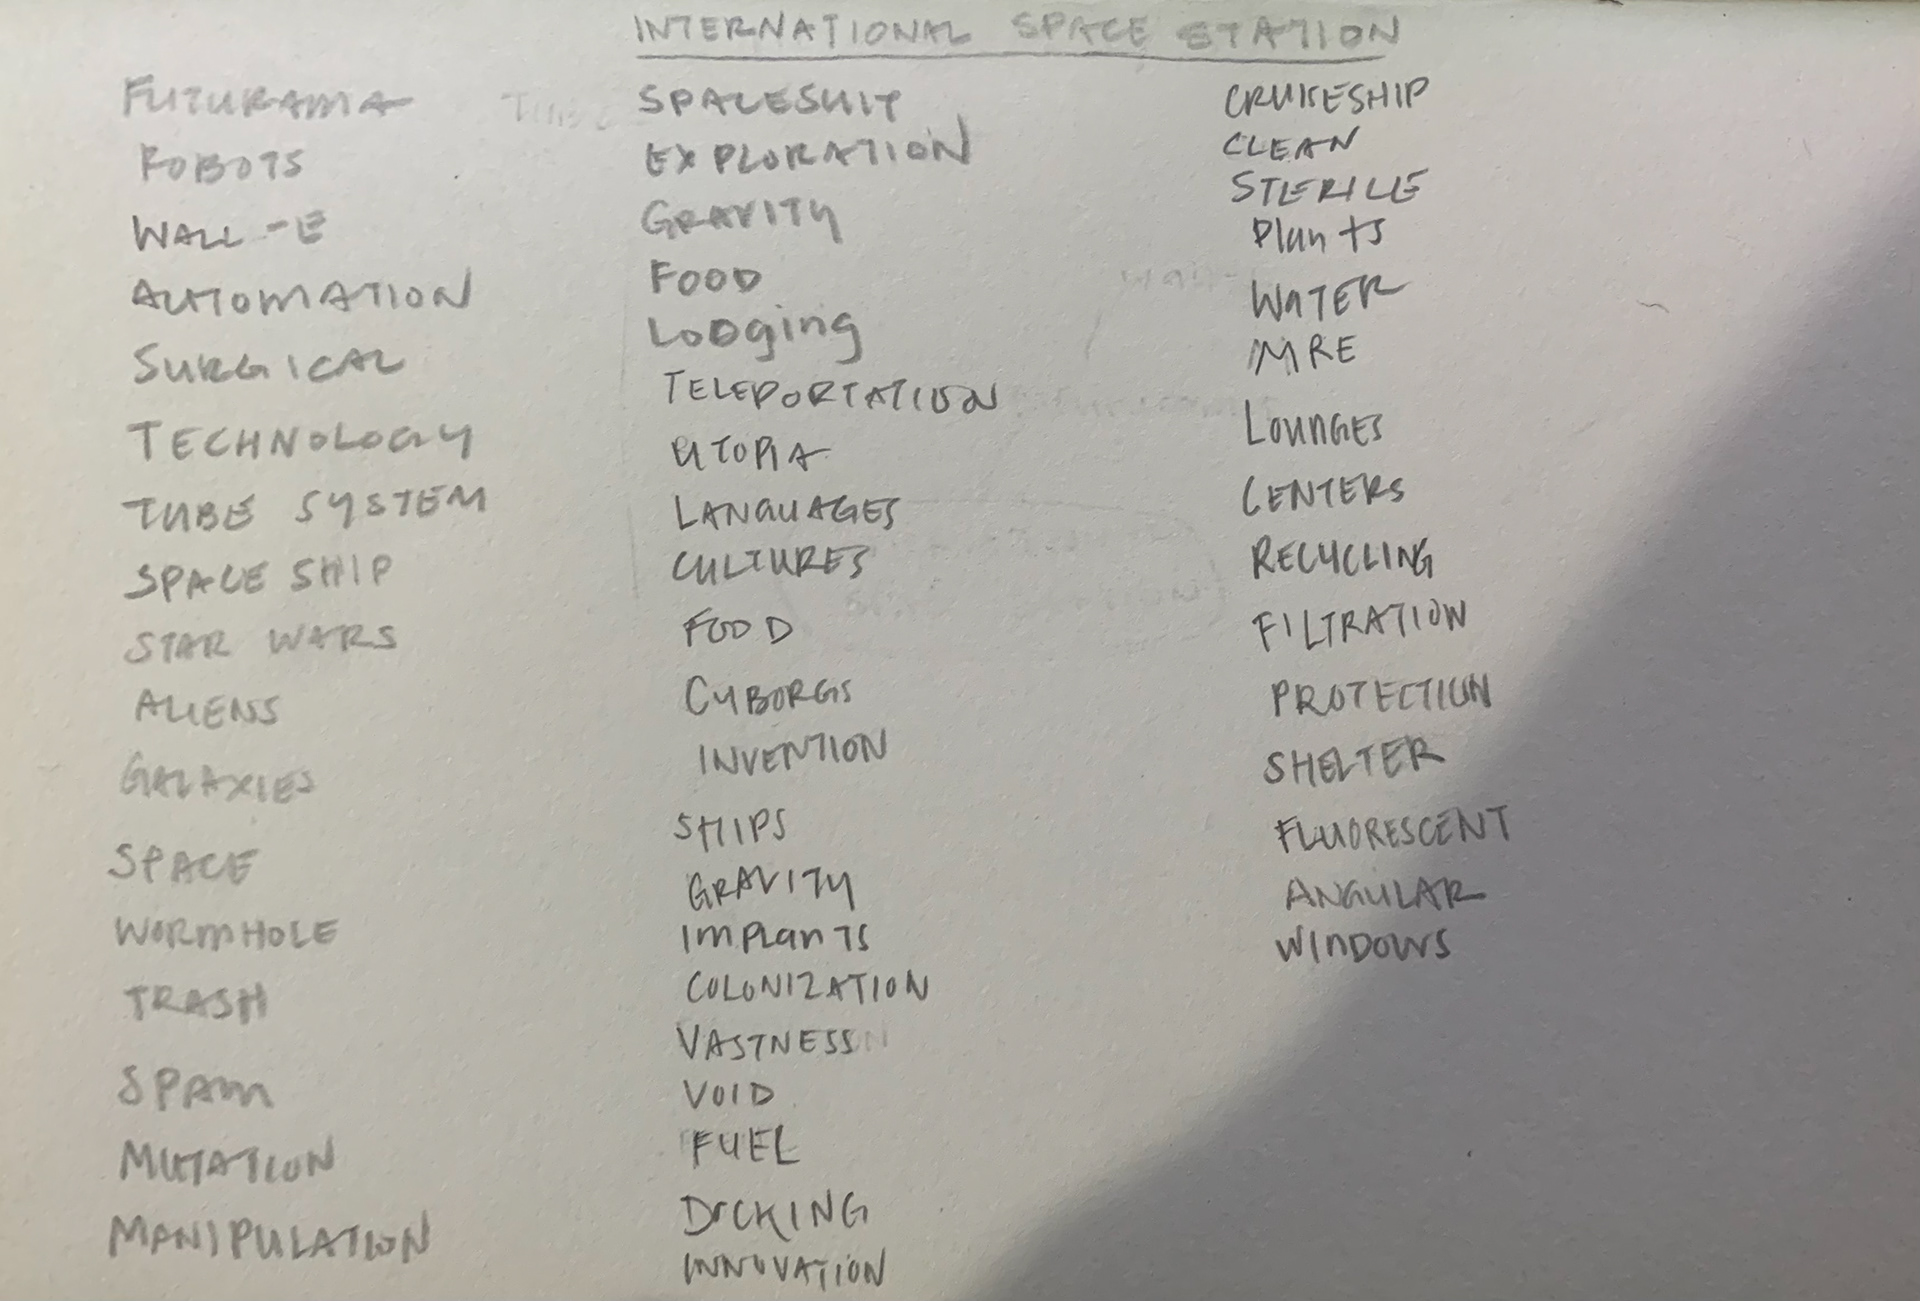 INTERNATIONAL SPACE STATION
FUTURAMA
ROBOTS
WALL-E
AUTOMATION
SURGICAL
TECHNOLOGY
TUBE SYSTEM
SPACE SHIP
STAR WARS
ALIENS
GALAXIES
SPACE
WORMHOLE
TRASH
SPAM
MUTATION
MANIPULATION
SPACESUIT
EXPLORATION
GRAVITY
FOOD
LODging
TELEPORTATION
UTOPIA
LANGUAGES
CULTURES
FOOD
CYBORGS
INVENTION
SHIPS
GRAVITY
IMPLanTS
COLONIZATION
VASTNESS
VOID
FUEL
DOCKING
INNOVATION
CRUISESHIP
CLEAN
STERILE
Plants
WATER
MRE
LOUNGES
CENTERS
RECYCLING
FILTRATION
PROTECTION
SHELTER
FLUORESCENT
ANGULAR
WINDOWS